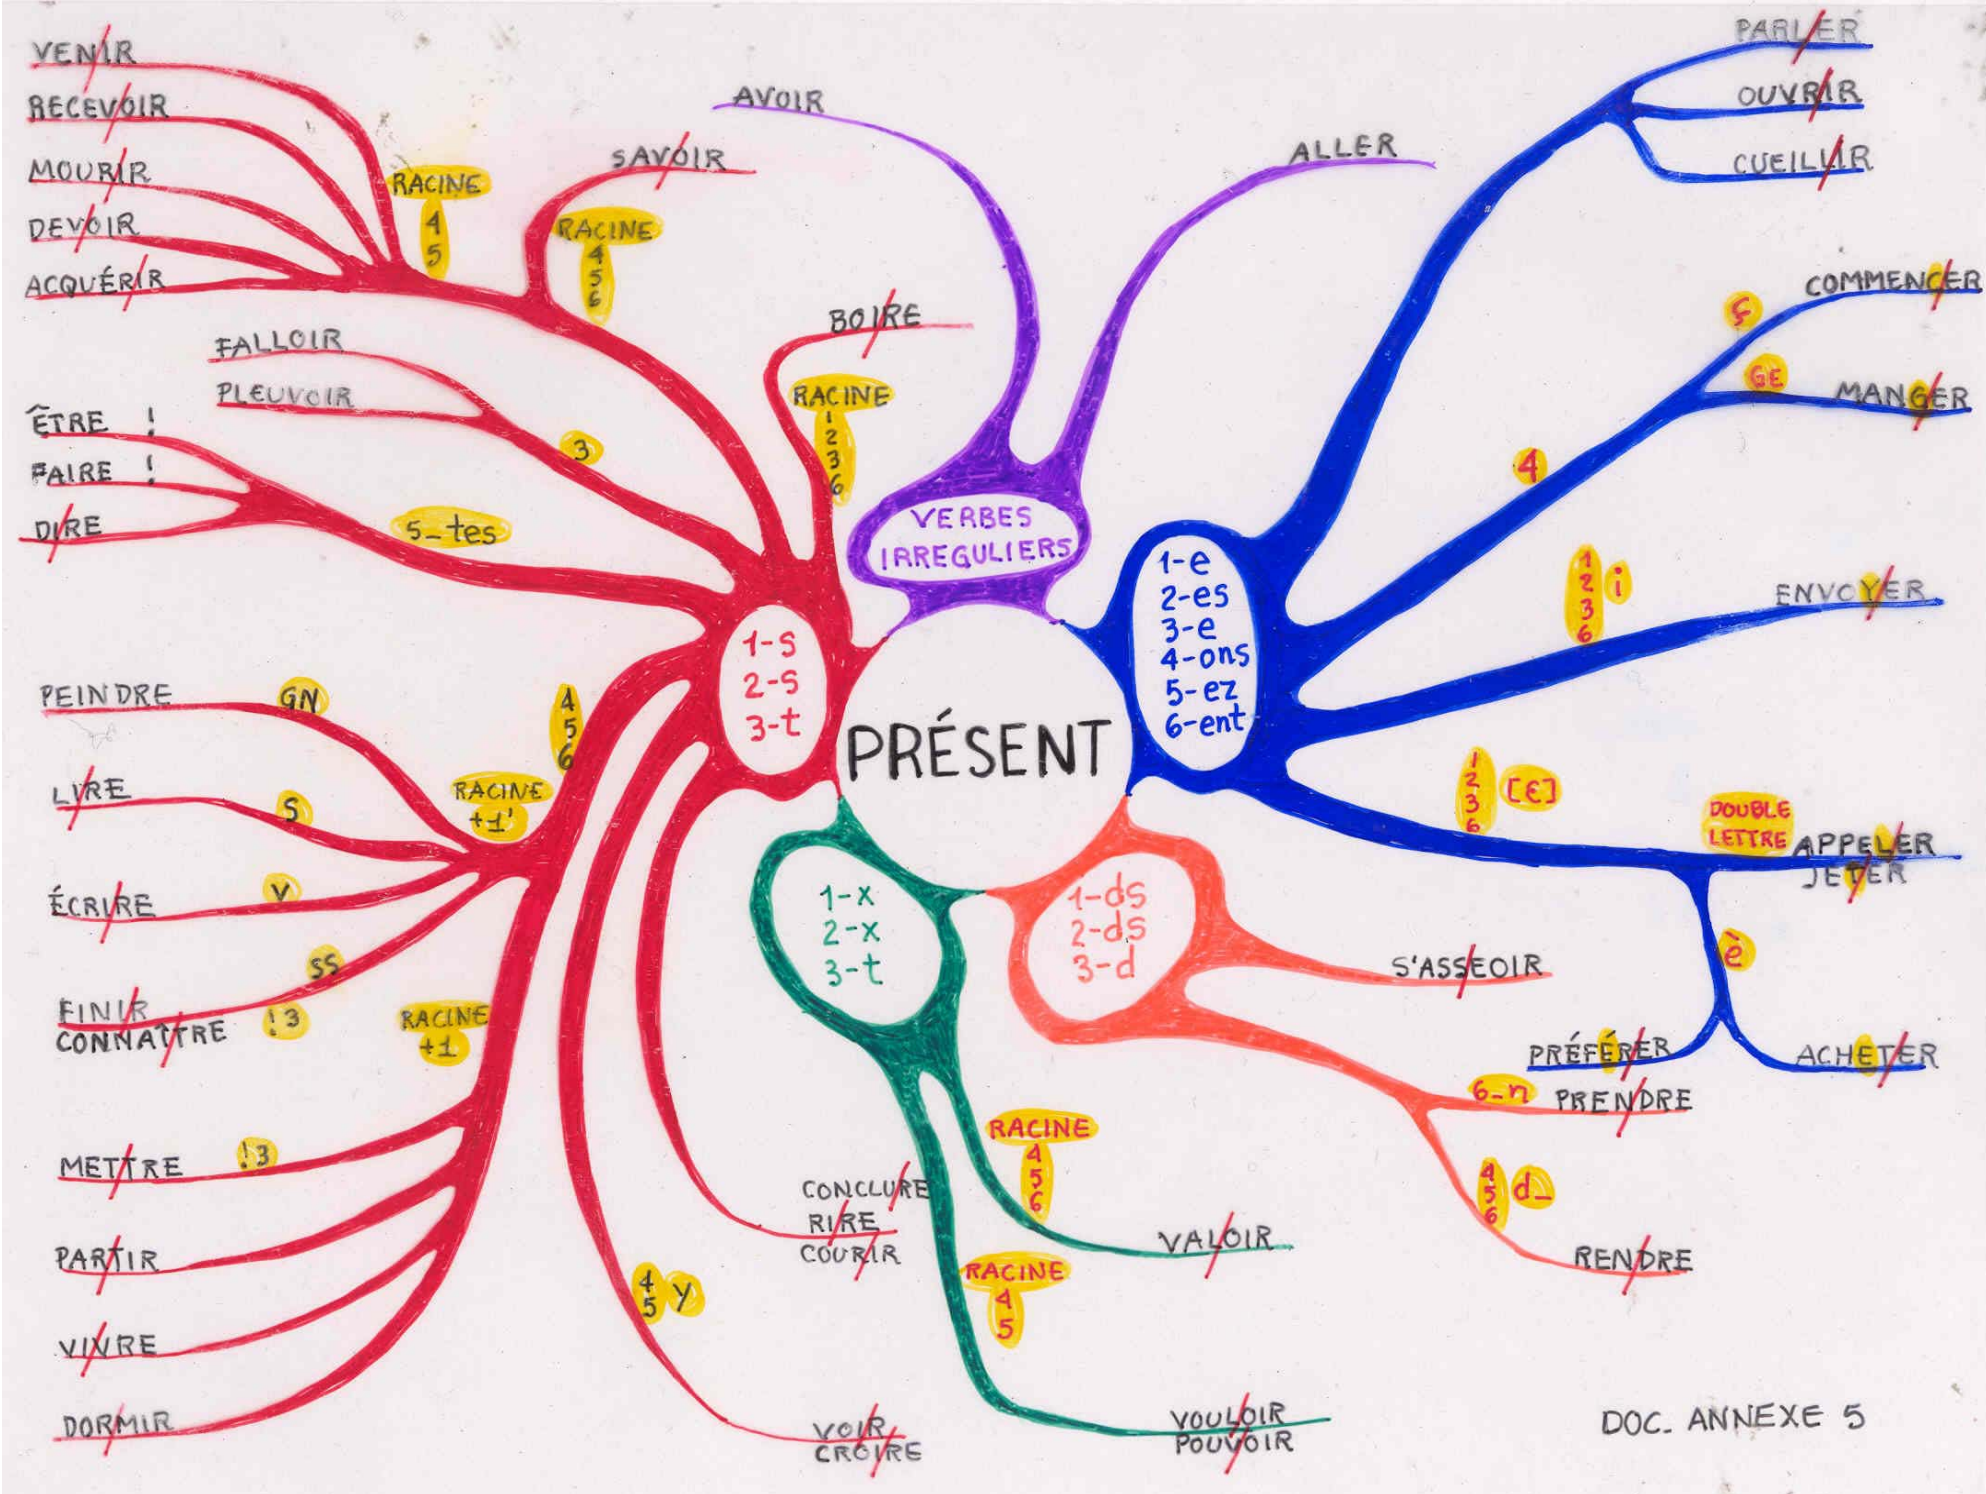 PRÉSENT
VERBES
IRREGULIERS
AVOIR
ALLER
1-e
2-es
3-e
4-ons
5-ez
6-ent
PARLER
OUVRIR
CUEILLIR
4
Ç
COMMENCER
GE
MANGER
1
2
3
6
i
ENVOYER
1
2
3
6
[ɛ]
DOUBLE
LETTRE
APPELER
JETER
è
PRÉFÉRER
ACHETER
1-ds
2-ds
3-d
S'ASSEOIR
6_n
PRENDRE
4
5
6
d_
RENDRE
1-x
2-x
3-t
RACINE
4
5
6
VALOIR
RACINE
4
5
VOULOIR
POUVOIR
1-s
2-s
3-t
BOIRE
RACINE
1
2
3
6
SAVOIR
RACINE
4
5
6
RACINE
4
5
VENIR
RECEVOIR
MOURIR
DEVOIR
ACQUÉRIR
FALLOIR
PLEUVOIR
3
ÊTRE !
FAIRE !
DIRE
5_tes
4
5
6
RACINE
+1'
PEINDRE
GN
LIRE
S
ÉCRIRE
V
SS
FINIR
CONNAÎTRE
!3
RACINE
+1
METTRE
!3
PARTIR
VIVRE
DORMIR
CONCLURE
RIRE
COURIR
4
5
y
VOIR
CROIRE
DOC. ANNEXE 5